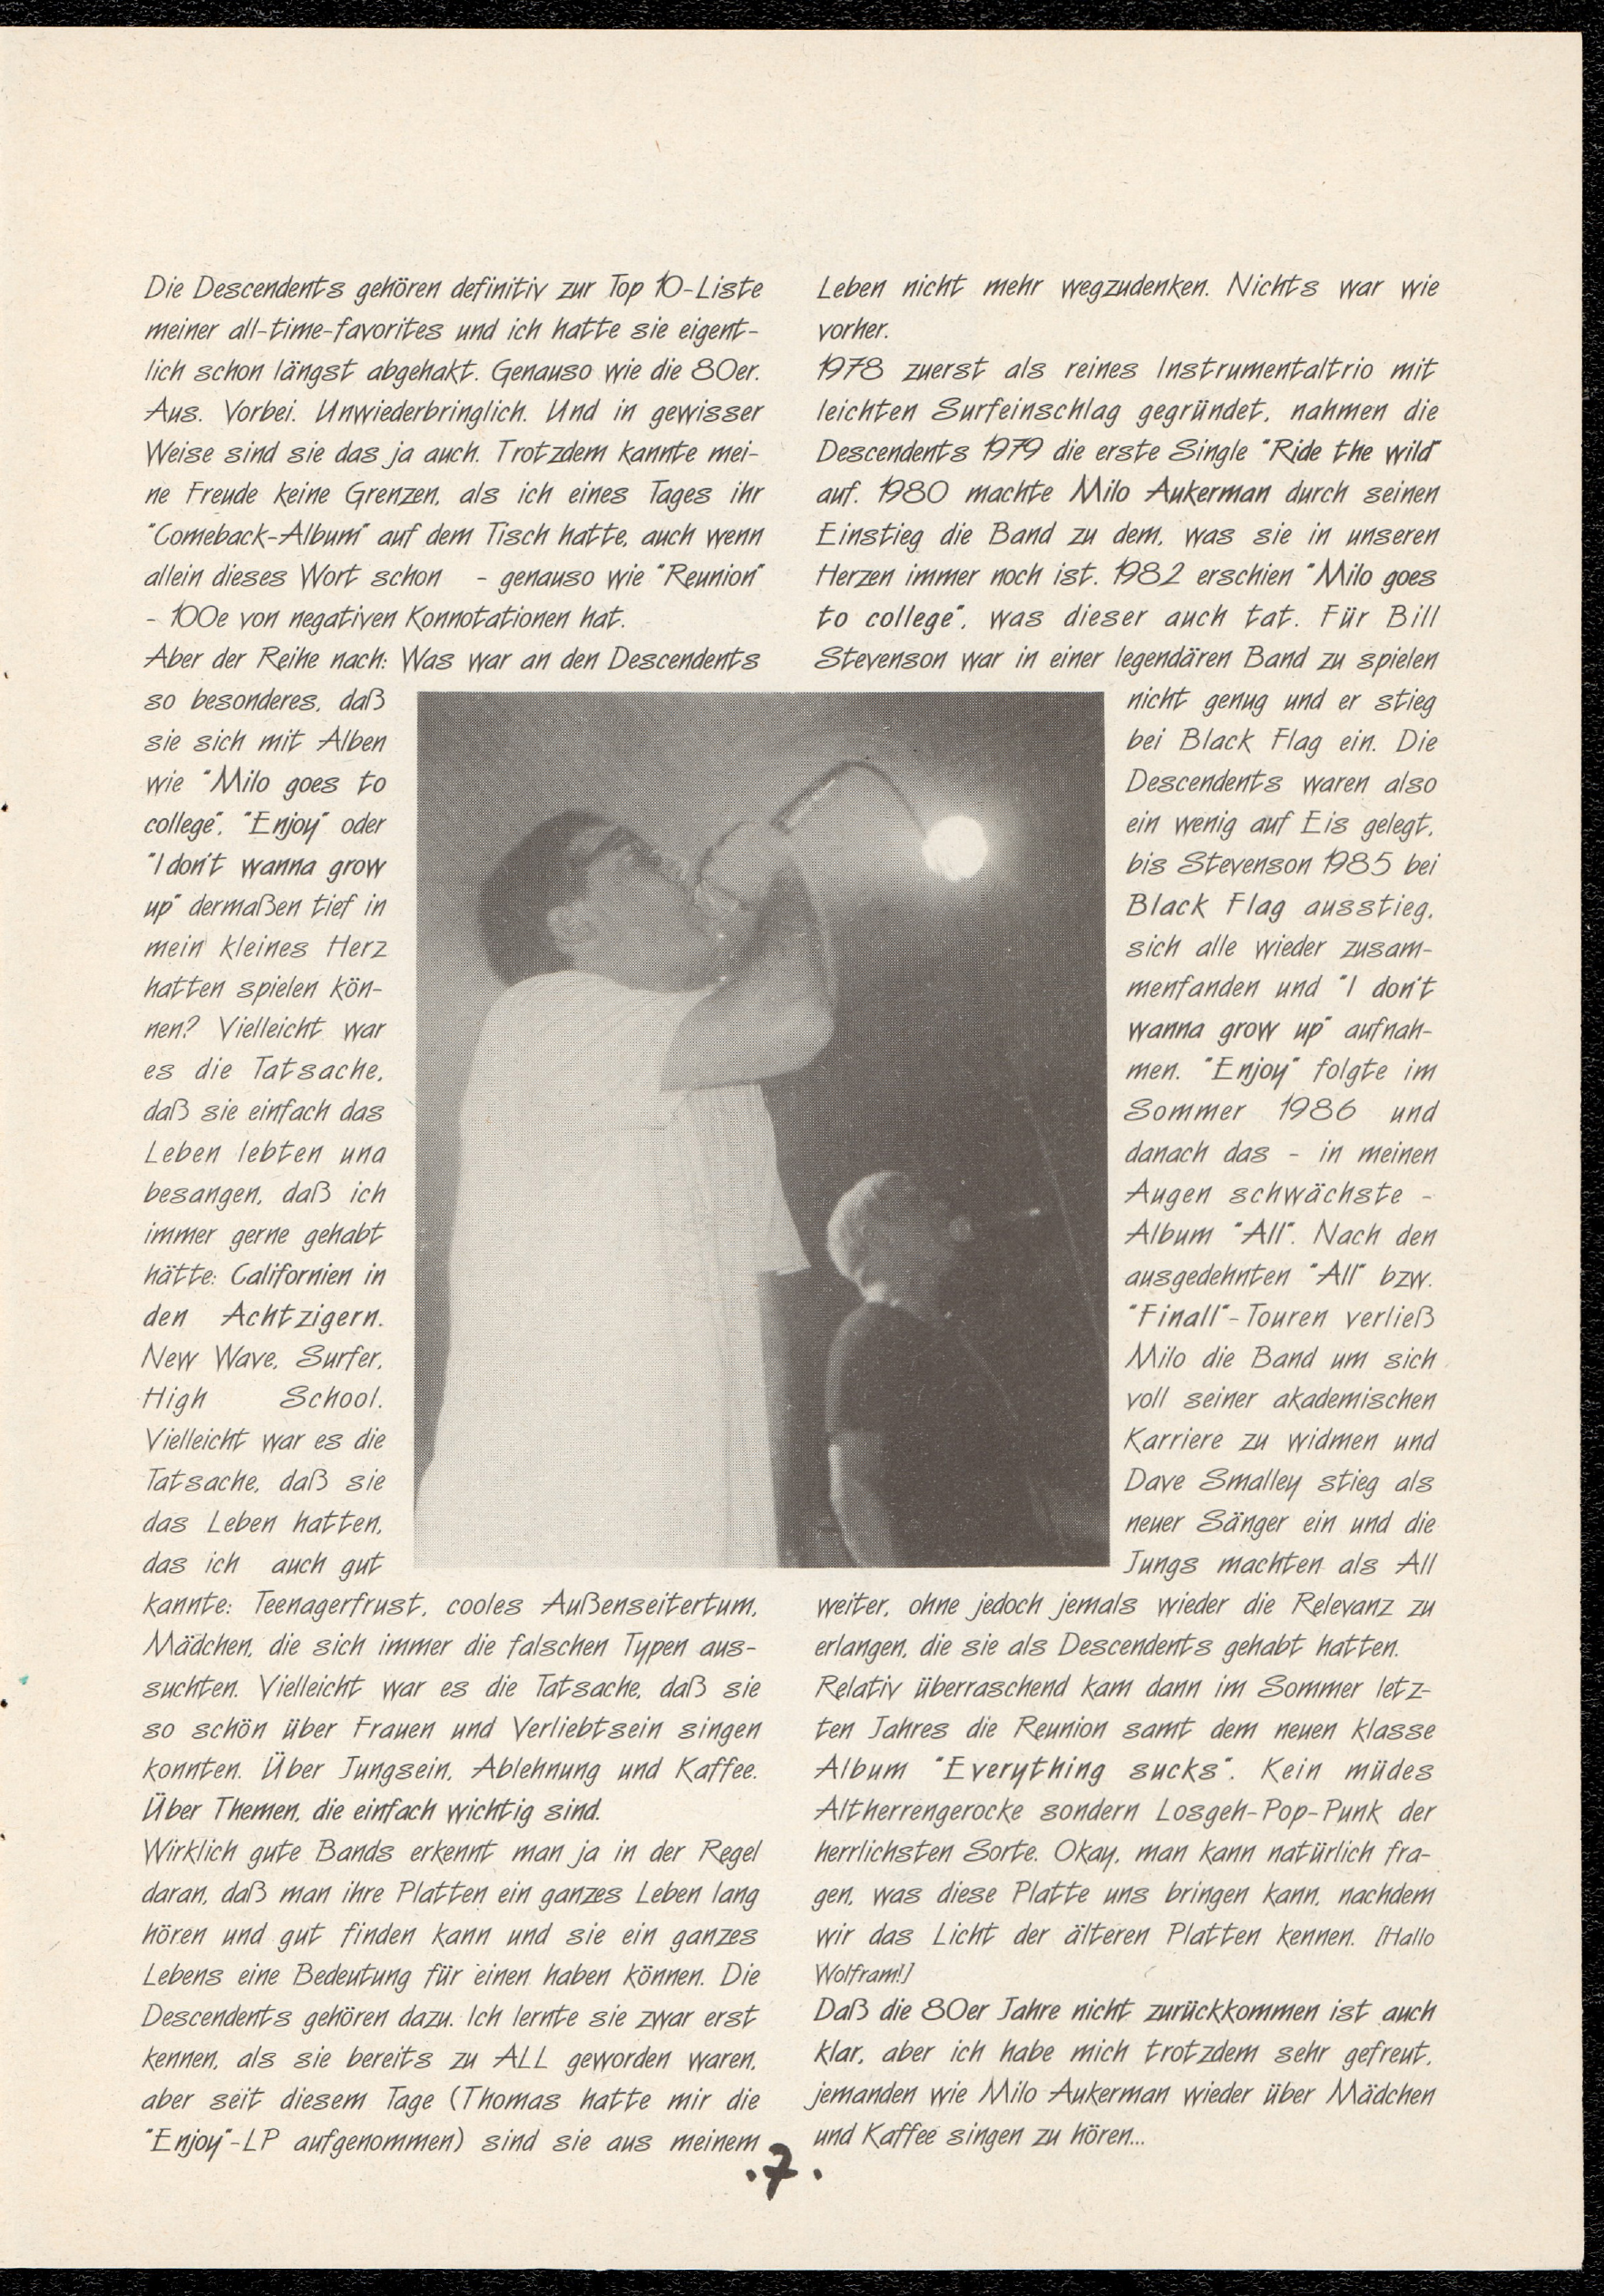 Die Descendents gehören definitiv zur Top 10-Liste
meiner all-time-favorites und ich hatte sie eigent-
lich schon längst abgehakt. Genauso wie die 80er.
Aus. Vorbei. Unwiederbringlich. Und in gewisser
Weise sind sie das ja auch. Trotzdem kannte mei-
ne Freude keine Grenzen, als ich eines Tages ihr
"Comeback-Album" auf dem Tisch hatte, auch wenn
allein dieses Wort schon - genauso wie "Reunion"
- 100e von negativen Konnotationen hat.
Aber der Reihe nach: Was war an den Descendents
so besonderes, daß
sie sich mit Alben
wie "Milo goes to
college", "Enjoy" oder
"I don't wanna grow
up" dermaßen tief in
mein kleines Herz
hatten spielen kön-
nen? Vielleicht war
es die Tatsache,
daß sie einfach das
Leben lebten und
besangen, daß ich
immer gerne gehabt
hätte: Californien in
den Achtzigern.
New Wave, Surfer,
High School.
Vielleicht war es die
Tatsache, daß sie
das Leben hatten,
das ich auch gut
kannte: Teenagerfrust, cooles Außenseitertum,
Mädchen, die sich immer die falschen Typen aus-
suchten. Vielleicht war es die Tatsache, daß sie
so schön über Frauen und Verliebtsein singen
konnten. Über Jungsein, Ablehnung und Kaffee.
Über Themen, die einfach wichtig sind.
Wirklich gute Bands erkennt man ja in der Regel
daran, daß man ihre Platten ein ganzes Leben lang
hören und gut finden kann und sie ein ganzes
Lebens eine Bedeutung für einen haben können. Die
Descendents gehören dazu. Ich lernte sie zwar erst
kennen, als sie bereits zu ALL geworden waren,
aber seit diesem Tage (Thomas hatte mir die
"Enjoy"-LP aufgenommen) sind sie aus meinem
Leben nicht mehr wegzudenken. Nichts war wie
vorher.
1978 zuerst als reines Instrumentaltrio mit
leichten Surfeinschlag gegründet, nahmen die
Descendents 1979 die erste Single "Ride the wild"
auf. 1980 machte Milo Aukerman durch seinen
Einstieg die Band zu dem, was sie in unseren
Herzen immer noch ist. 1982 erschien "Milo goes
to college", was dieser auch tat. Für Bill
Stevenson war in einer legendären Band zu spielen
nicht genug und er stieg
bei Black Flag ein. Die
Descendents waren also
ein wenig auf Eis gelegt,
bis Stevenson 1985 bei
Black Flag ausstieg,
sich alle wieder zusam-
menfanden und "I don't
wanna grow up" aufnah-
men. "Enjoy" folgte im
Sommer 1986 und
danach das - in meinen
Augen schwächste -
Album "All". Nach den
ausgedehnten "All" bzw.
"Finall"-Touren verließ
Milo die Band um sich
voll seiner akademischen
Karriere zu widmen und
Dave Smalley stieg als
neuer Sänger ein und die
Jungs machten als All
weiter, ohne jedoch jemals wieder die Relevanz zu
erlangen, die sie als Descendents gehabt hatten.
Relativ überraschend kam dann im Sommer letz-
ten Jahres die Reunion samt dem neuen klasse
Album "Everything sucks". Kein müdes
Altherrengerocke sondern Losgeh-Pop-Punk der
herrlichsten Sorte. Okay, man kann natürlich fra-
gen, was diese Platte uns bringen kann, nachdem
wir das Licht der älteren Platten kennen. [Hallo
Wolfram!]
Daß die 80er Jahre nicht zurückkommen ist auch
klar, aber ich habe mich trotzdem sehr gefreut,
jemanden wie Milo Aukerman wieder über Mädchen
und Kaffee singen zu hören...
.7.